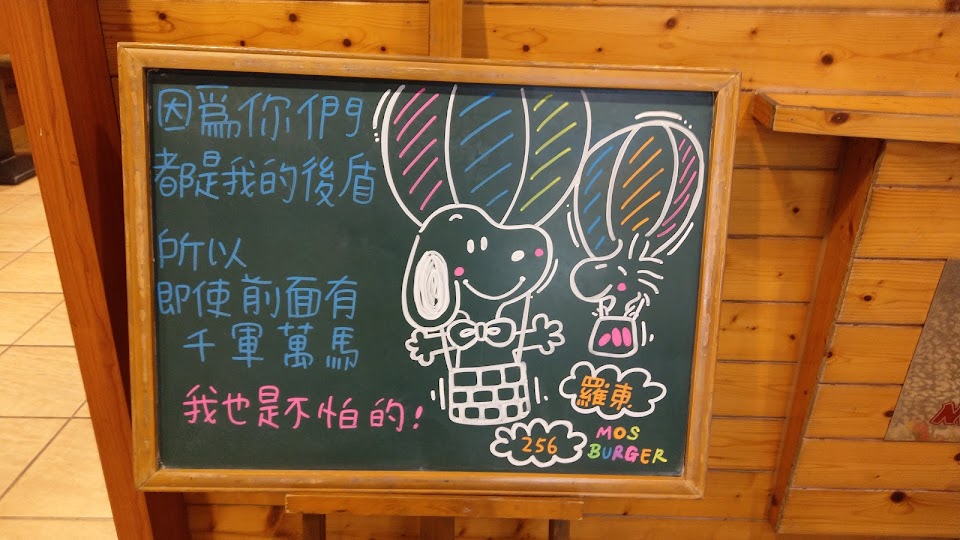 因為你們
都是我的後盾
所以
即使前面有
千軍萬馬
我也是不怕的!
羅東
256
MOS
BURGER